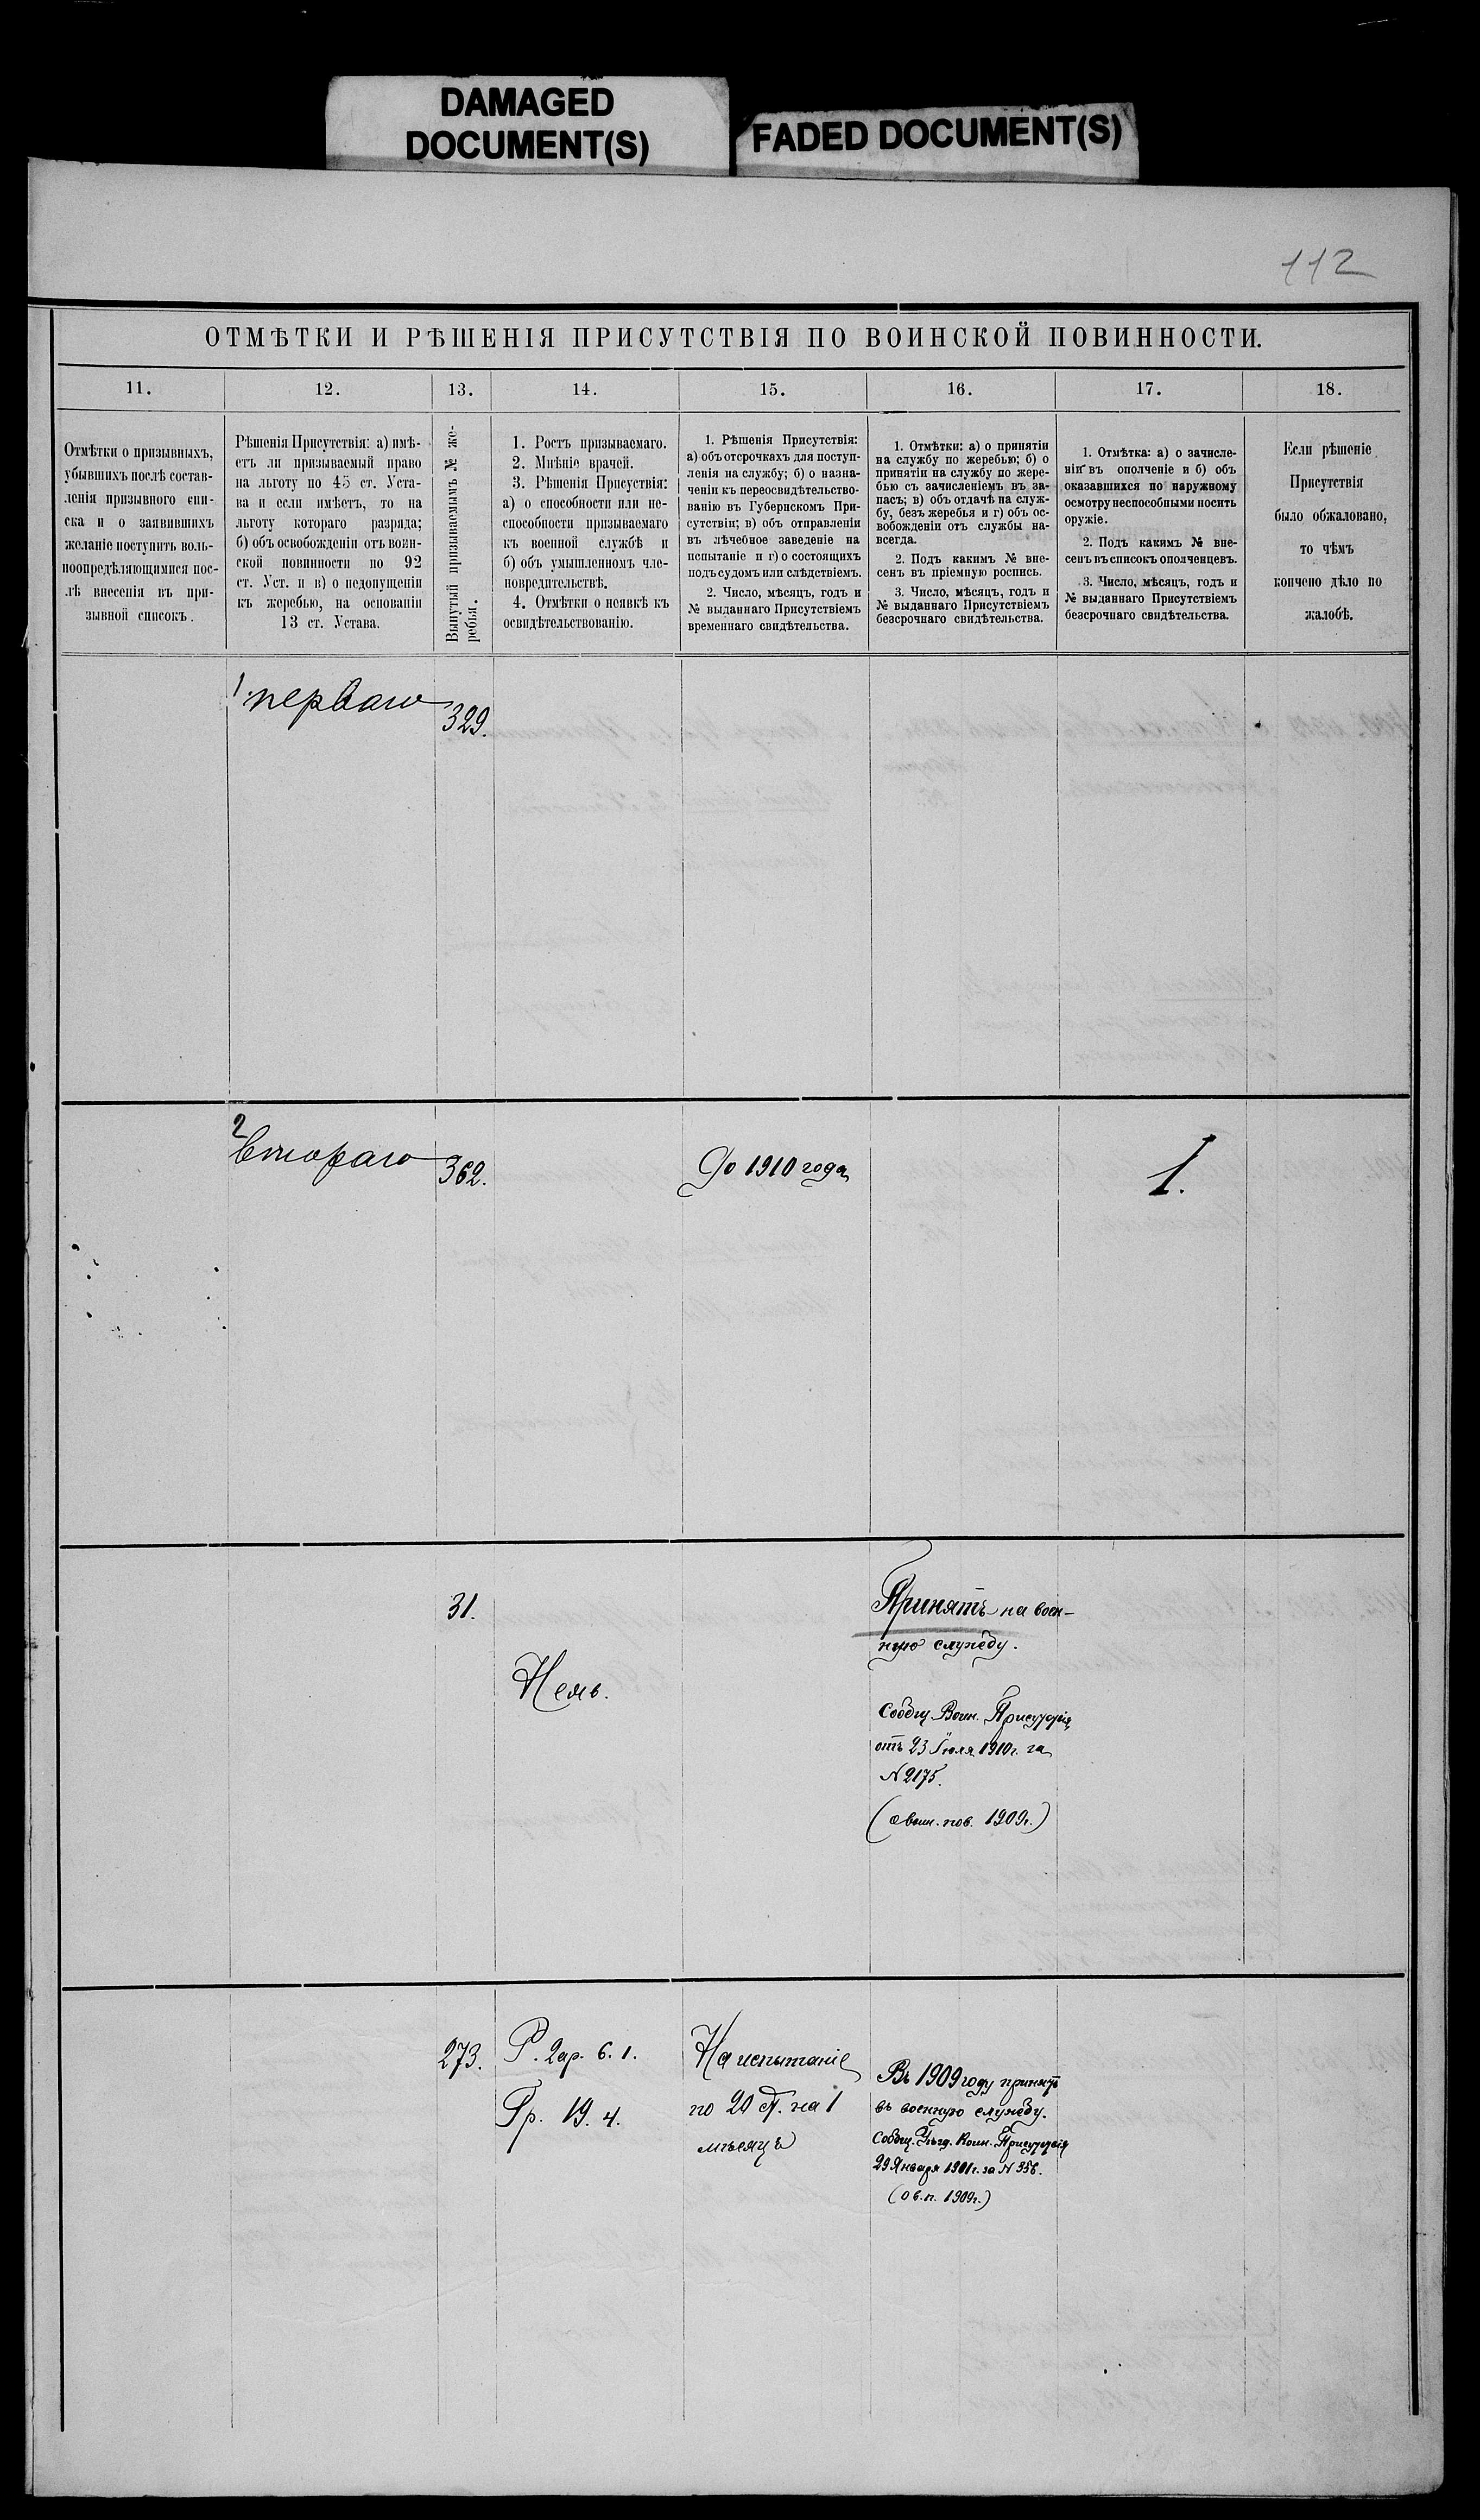 DAMAGED
DOCUMENT(S)
FADED DOCUMENT(S)
112
ОТМѢТКИ И РѢШЕНІЯ ПРИСУТСТВІЯ ПО ВОИНСКОЙ ПОВИННОСТИ.
11.
12.
13.
14.
15.
16.
17.
18.
Отмѣтки о призывныхъ,
убывшихъ послѣ состав-
ленія призывного спи-
ска и о заявившихъ
желаніе поступить воль-
ноопредѣляющимися пос-
лѣ внесенія въ при-
зывной списокъ.
Рѣшенія Присутствія: а) имѣ-
етъ ли призываемый право
на льготу по 45 ст. Уста-
ва и если имѣетъ, то на
льготу котораго разряда;
б) объ освобожденіи отъ воин-
ской повинности по 92
ст. Уст. и в) о недопущеніи
къ жеребью, на основаніи
13 ст. Устава.
Вынутый призываемымъ № же-
ребья.
1. Ростъ призываемаго.
2. Мнѣніе врачей.
3. Рѣшенія Присуствія:
а) о способности или не-
способности призываемаго
къ военной службѣ и
б) объ умышленномъ чле-
новредительствѣ.
4. Отмѣтки о неявкѣ къ
освидѣтельствованію.
1. Рѣшенія Присутствія:
а) объ отсрочкахъ для поступ-
ленія на службу; б) о назна-
ченіи къ переосвидѣтельство-
ванію въ Губернскомъ При-
сутствіи; в) объ отправленіи
въ лѣчебное заведеніе на
испытаніе и г) о состоящихъ
подъ судомъ или слѣдствіемъ.
2. Число, мѣсяцъ, годъ и
№ выданнаго Присутствіемъ
временнаго свидѣтельства.
1. Отмѣтки: а) о принятіи
на службу по жеребью; б) о
принятіи на службу по жере-
бью съ зачисленіемъ въ за-
пасъ; в) объ отдачѣ на служ-
бу, безъ жеребья и г) объ ос-
вобожденіи отъ службы на-
всегда.
2. Подъ какимъ № вне-
сенъ въ пріемную роспись.
3. Число, мѣсяцъ, годъ и
№ выданнаго Присутствіемъ
безсрочнаго свидѣтельства.
1. Отмѣтка: а) о зачисле-
ніи въ ополченіе и б) объ
оказавшихся по наружному
осмотру неспособными носить
оружіе.
2. Подъ какимъ № вне-
сенъ въ списокъ ополченцевъ.
3. Число, мѣсяцъ, годъ и
№ выданнаго Присутствіемъ
безсрочнаго свидѣтельства.
Если рѣшеніе
Присутствія
было обжаловано,
то чѣмъ
кончено дѣло по
жалобѣ.
1 перваго
329.
2
втораго
362.
До 1910 года
1.
31.
Неяв.
Принятъ на воен-
ную службу.
Сообщ. Воин. Присутствія
отъ 23 Іюля 1910 г. за
N 2175.
(о воин. пов. 1909г.)
273.
Р. 2 ар. 6. 1.
Гр. 19. 4.
На испытаніе
по 20 Л. на 1
мѣсяцъ
Въ 1909 году принятъ
въ военную службу.
Сообщ. Уѣзд. Воин. Присутствія
29 Января 1901 г. за N 358.
(О в. п. 1909г.)